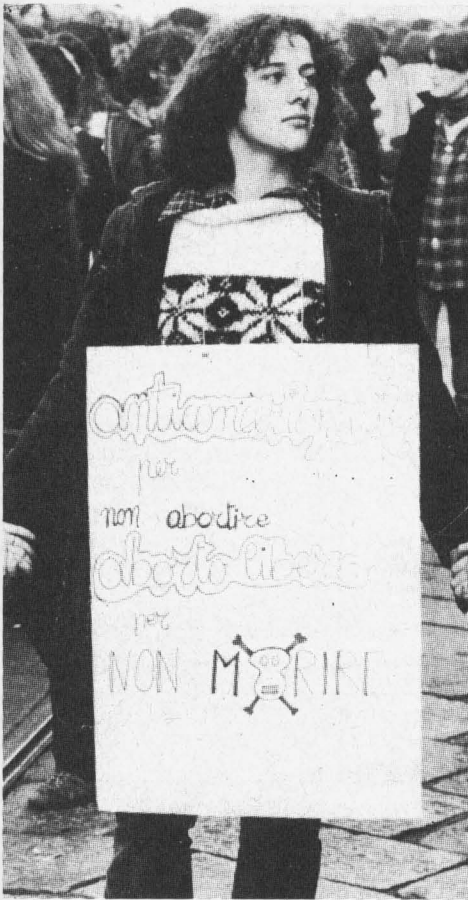 anticoncezionali
per
non abortire
aborto libero
per
NON MORIRE